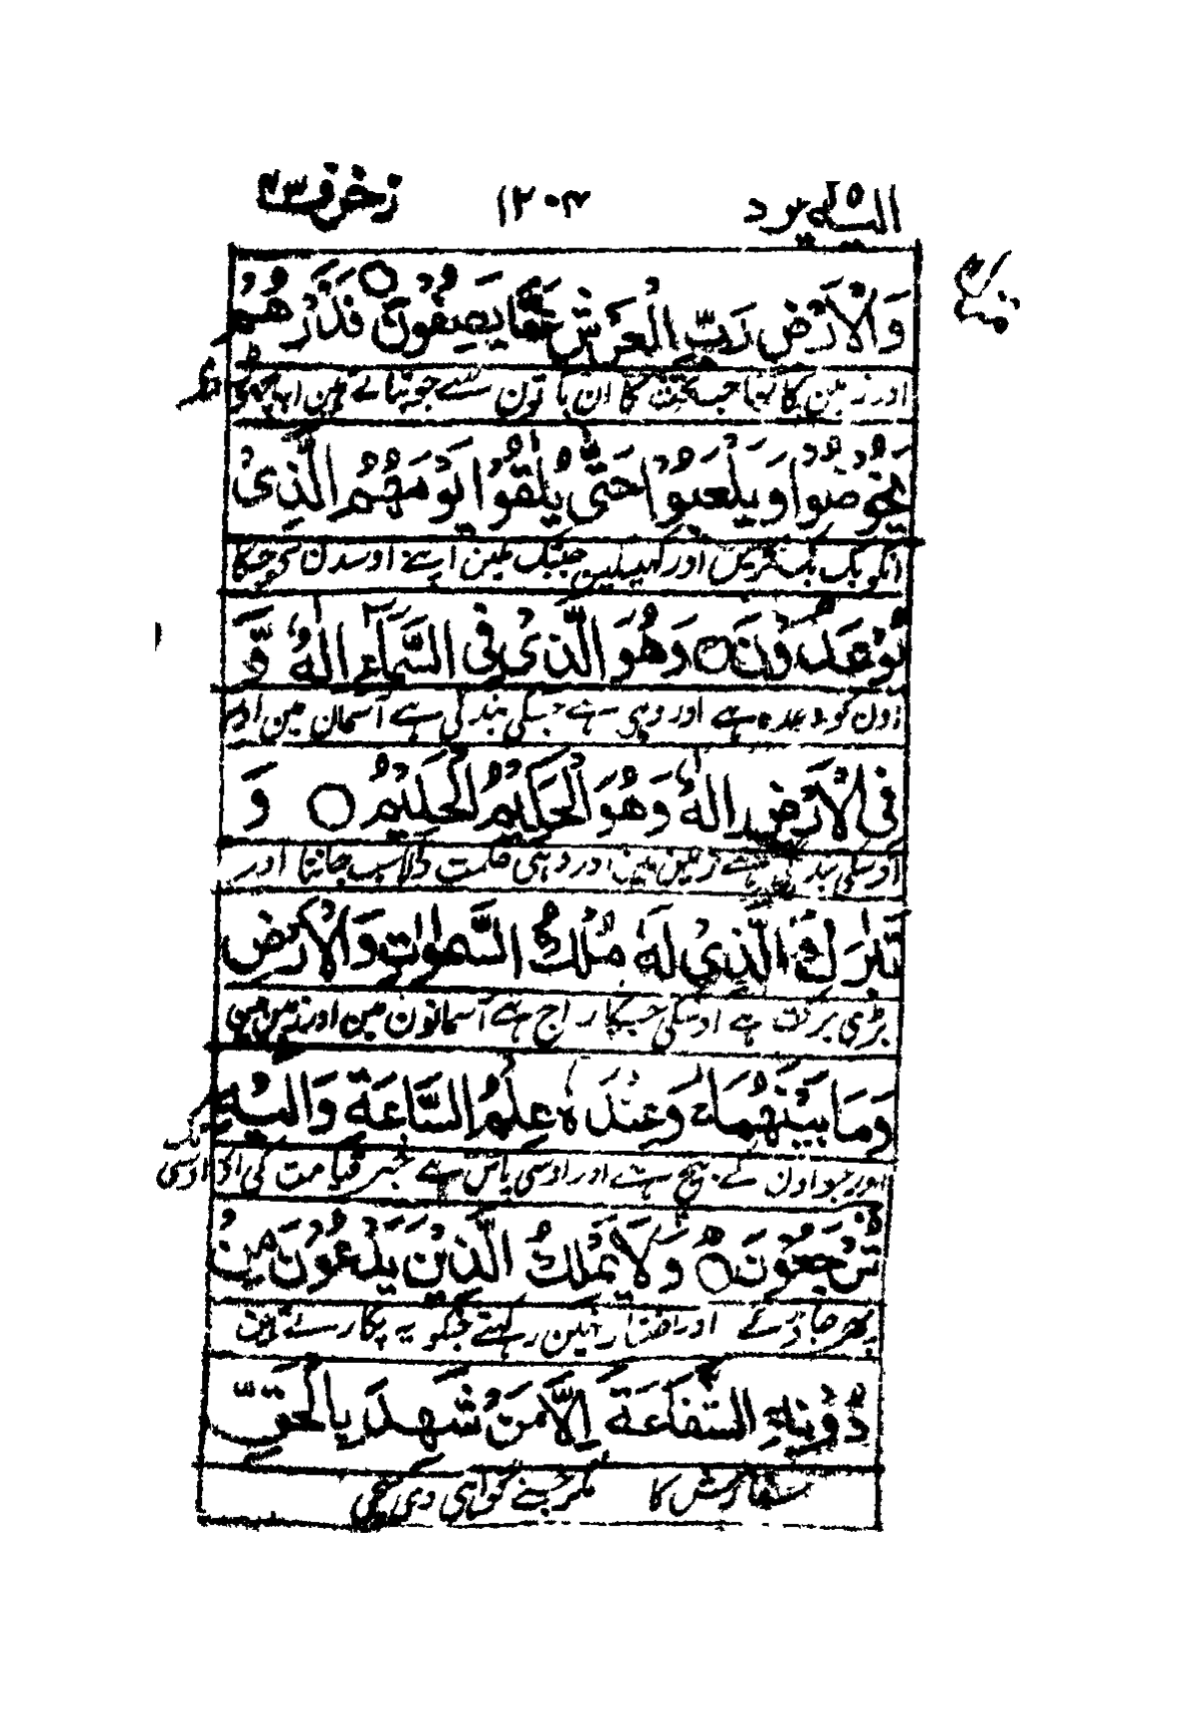 الیه یرد ۲۵ ۱۲۰۴ زخرف ۴۳
وَالْاَرْضِ رَبِّ الْعَرْشِ عَمَّا يَصِفُوْنَ ○ فَذَرْهُمْ
اور زمین کا صاحب تخت کا ان باتون سے جو بتاتے ہین اب چھوڑ دی
يَخُوْضُوْا وَيَلْعَبُوْا حَتّٰى يُلٰقُوْا يَوْمَهُمُ الَّذِىْ
انکو بک بک کرین اور کھیلین جبتک ملین اپنے اوسدن سے جسکا
يُوْعَدُوْنَ ○ وَهُوَ الَّذِىْ فِى السَّمَآءِ اِلٰهٌ وَّ
اون کو وعدہ ہے اور وہی ہے جسکی بندگی ہے آسمان مین اور
فِى الْاَرْضِ اِلٰهٌ وَهُوَ الْحَكِيْمُ الْعَلِيْمُ ○ وَ
اوسکی بندگی ہے زمین مین اور وہی حکمت والا سب جانتا اور
تَبٰرَكَ الَّذِىْ لَهٗ مُلْكُ السَّمٰوٰتِ وَالْاَرْضِ
بڑی برکت ہے اوسکی جسکا راج ہے آسمانون مین اور زمین مین
وَمَا بَيْنَهُمَا وَعِنْدَهٗ عِلْمُ السَّاعَةِ وَاِلَيْهِ
اور جو اون کے بیچ ہے اور اوسی پاس ہے خبر قیامت کی اور اوسی تک
تُرْجَعُوْنَ ○ وَلَا يَمْلِكُ الَّذِيْنَ يَدْعُوْنَ مِنْ
پھر جاؤ گے اور اختیار نہین رکھتے جنکو یہ پکارتے ہین
دُوْنِهِ الشَّفَاعَةَ اِلَّا مَنْ شَهِدَ بِالْحَقِّ
سفارش کا مگر جسنے گواہی دی سچی